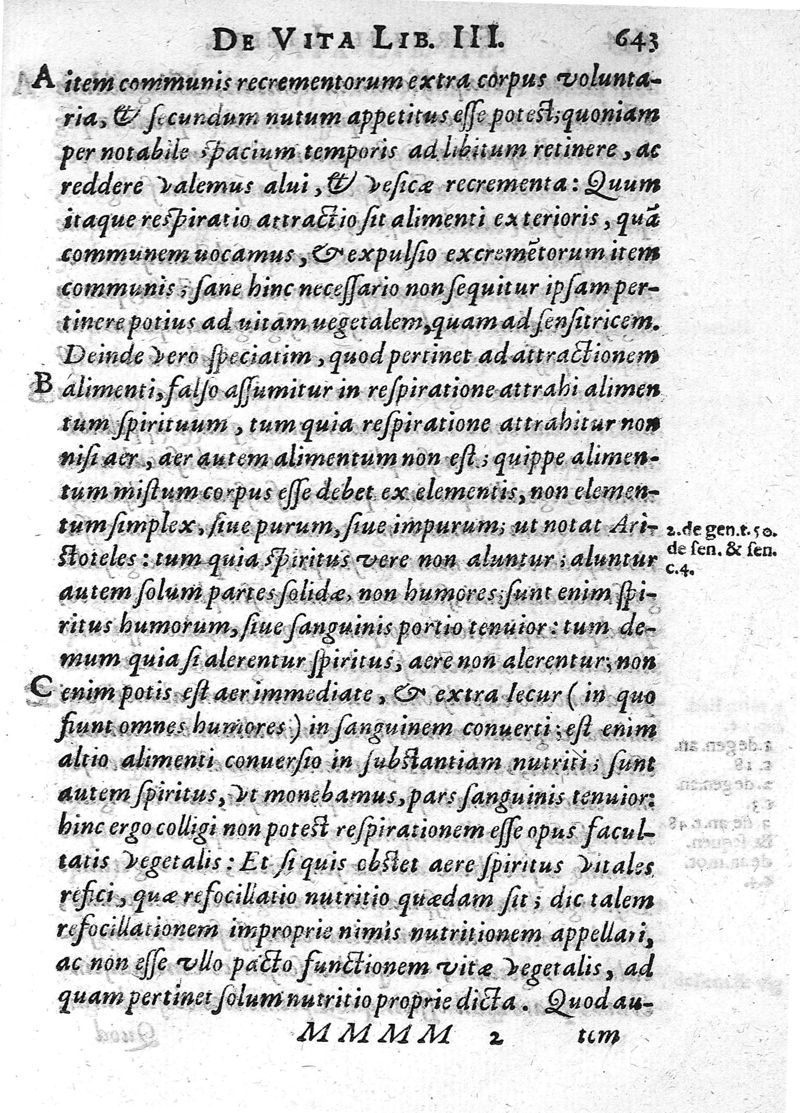 DE VITA LIB. III. 643
A item communis recrementorum extra corpus volunta-
ria, & secundum nutum appetitus esse potest; quoniam
per notabile spacium temporis ad libitum retinere, ac
reddere valemus alui, & vesicæ recrementa: Quum
itaque respiratio attractio sit alimenti exterioris, quã
communem uocamus, & expulsio excremẽtorum item
communis; sane hinc necessario non sequitur ipsam per-
tinere potius ad uitam uegetalem, quam ad sensitricem.
Deinde vero speciatim, quod pertinet ad attractionem
B alimenti, falso assumitur in respiratione attrahi alimen
tum spirituum, tum quia respiratione attrahitur non
nisi aer, aer autem alimentum non est; quippe alimen-
tum mistum corpus esse debet ex elementis, non elemen-
tum simplex, siue purum, siue impurum; ut notat Ari- 2. de gen.t.50.
stoteles: tum quia spiritus vere non aluntur; aluntur de sen. & sen.
autem solum partes solidæ, non humores; sunt enim spi- c.4.
ritus humorum, siue sanguinis portio tenuior: tum de-
mum quia si alerentur spiritus, aere non alerentur; non
C enim potis est aer immediate, & extra Iecur ( in quo
fiunt omnes humores ) in sanguinem conuerti; est enim
altio alimenti conuersio in substantiam nutriti; sunt
autem spiritus, vt monebamus, pars sanguinis tenuior:
hinc ergo colligi non potest respirationem esse opus facul-
tatis vegetalis: Et si quis obstet aere spiritus vitales
refici, quæ refocillatio nutritio quædam sit; dic talem
refocillationem improprie nimis nutritionem appellari,
ac non esse vllo pacto functionem vitæ vegetalis, ad
quam pertinet solum nutritio proprie dicta. Quod au-
MMMM 2 tem